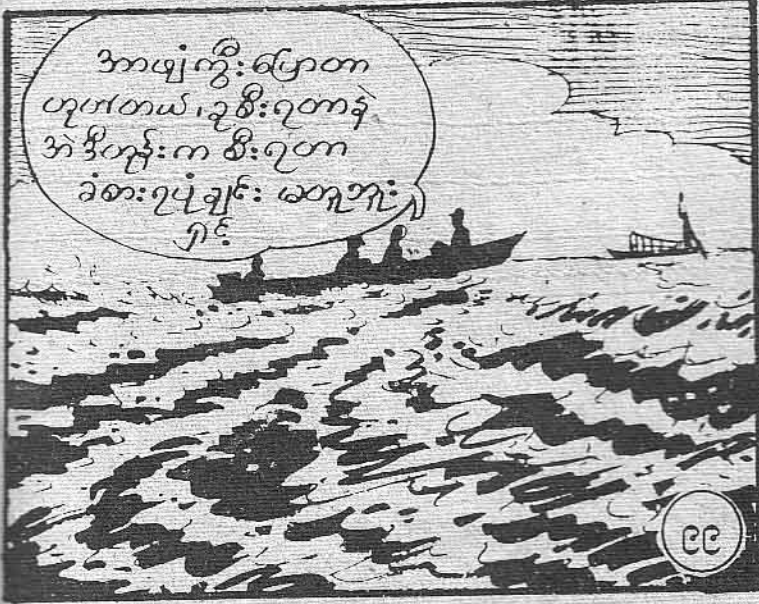 အာဖျံကွီးပြောတာ
ဟုတ်တယ်၊ ခုစီးရတာနဲ့
အဲဒီတုန်းက စီးရတာ
ခံစားရပုံချင်း မတူဘူး
ရှင့်
၉၉